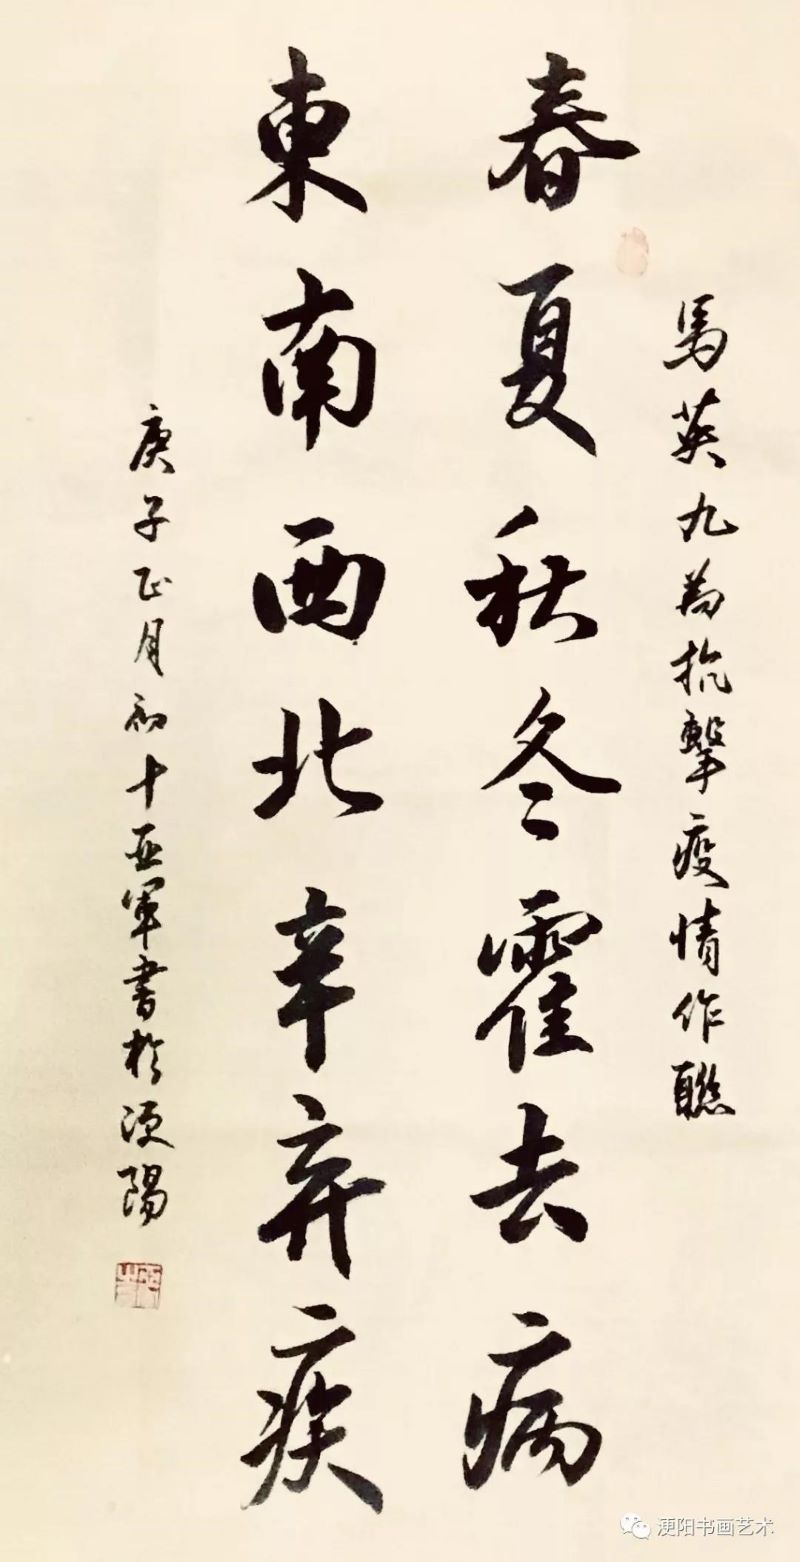 馬英九為抗擊疫情作聯
春夏秋冬霍去病
東南西北辛弃疾
庚子正月初十亚軍書於浭陽
浭阳书画艺术